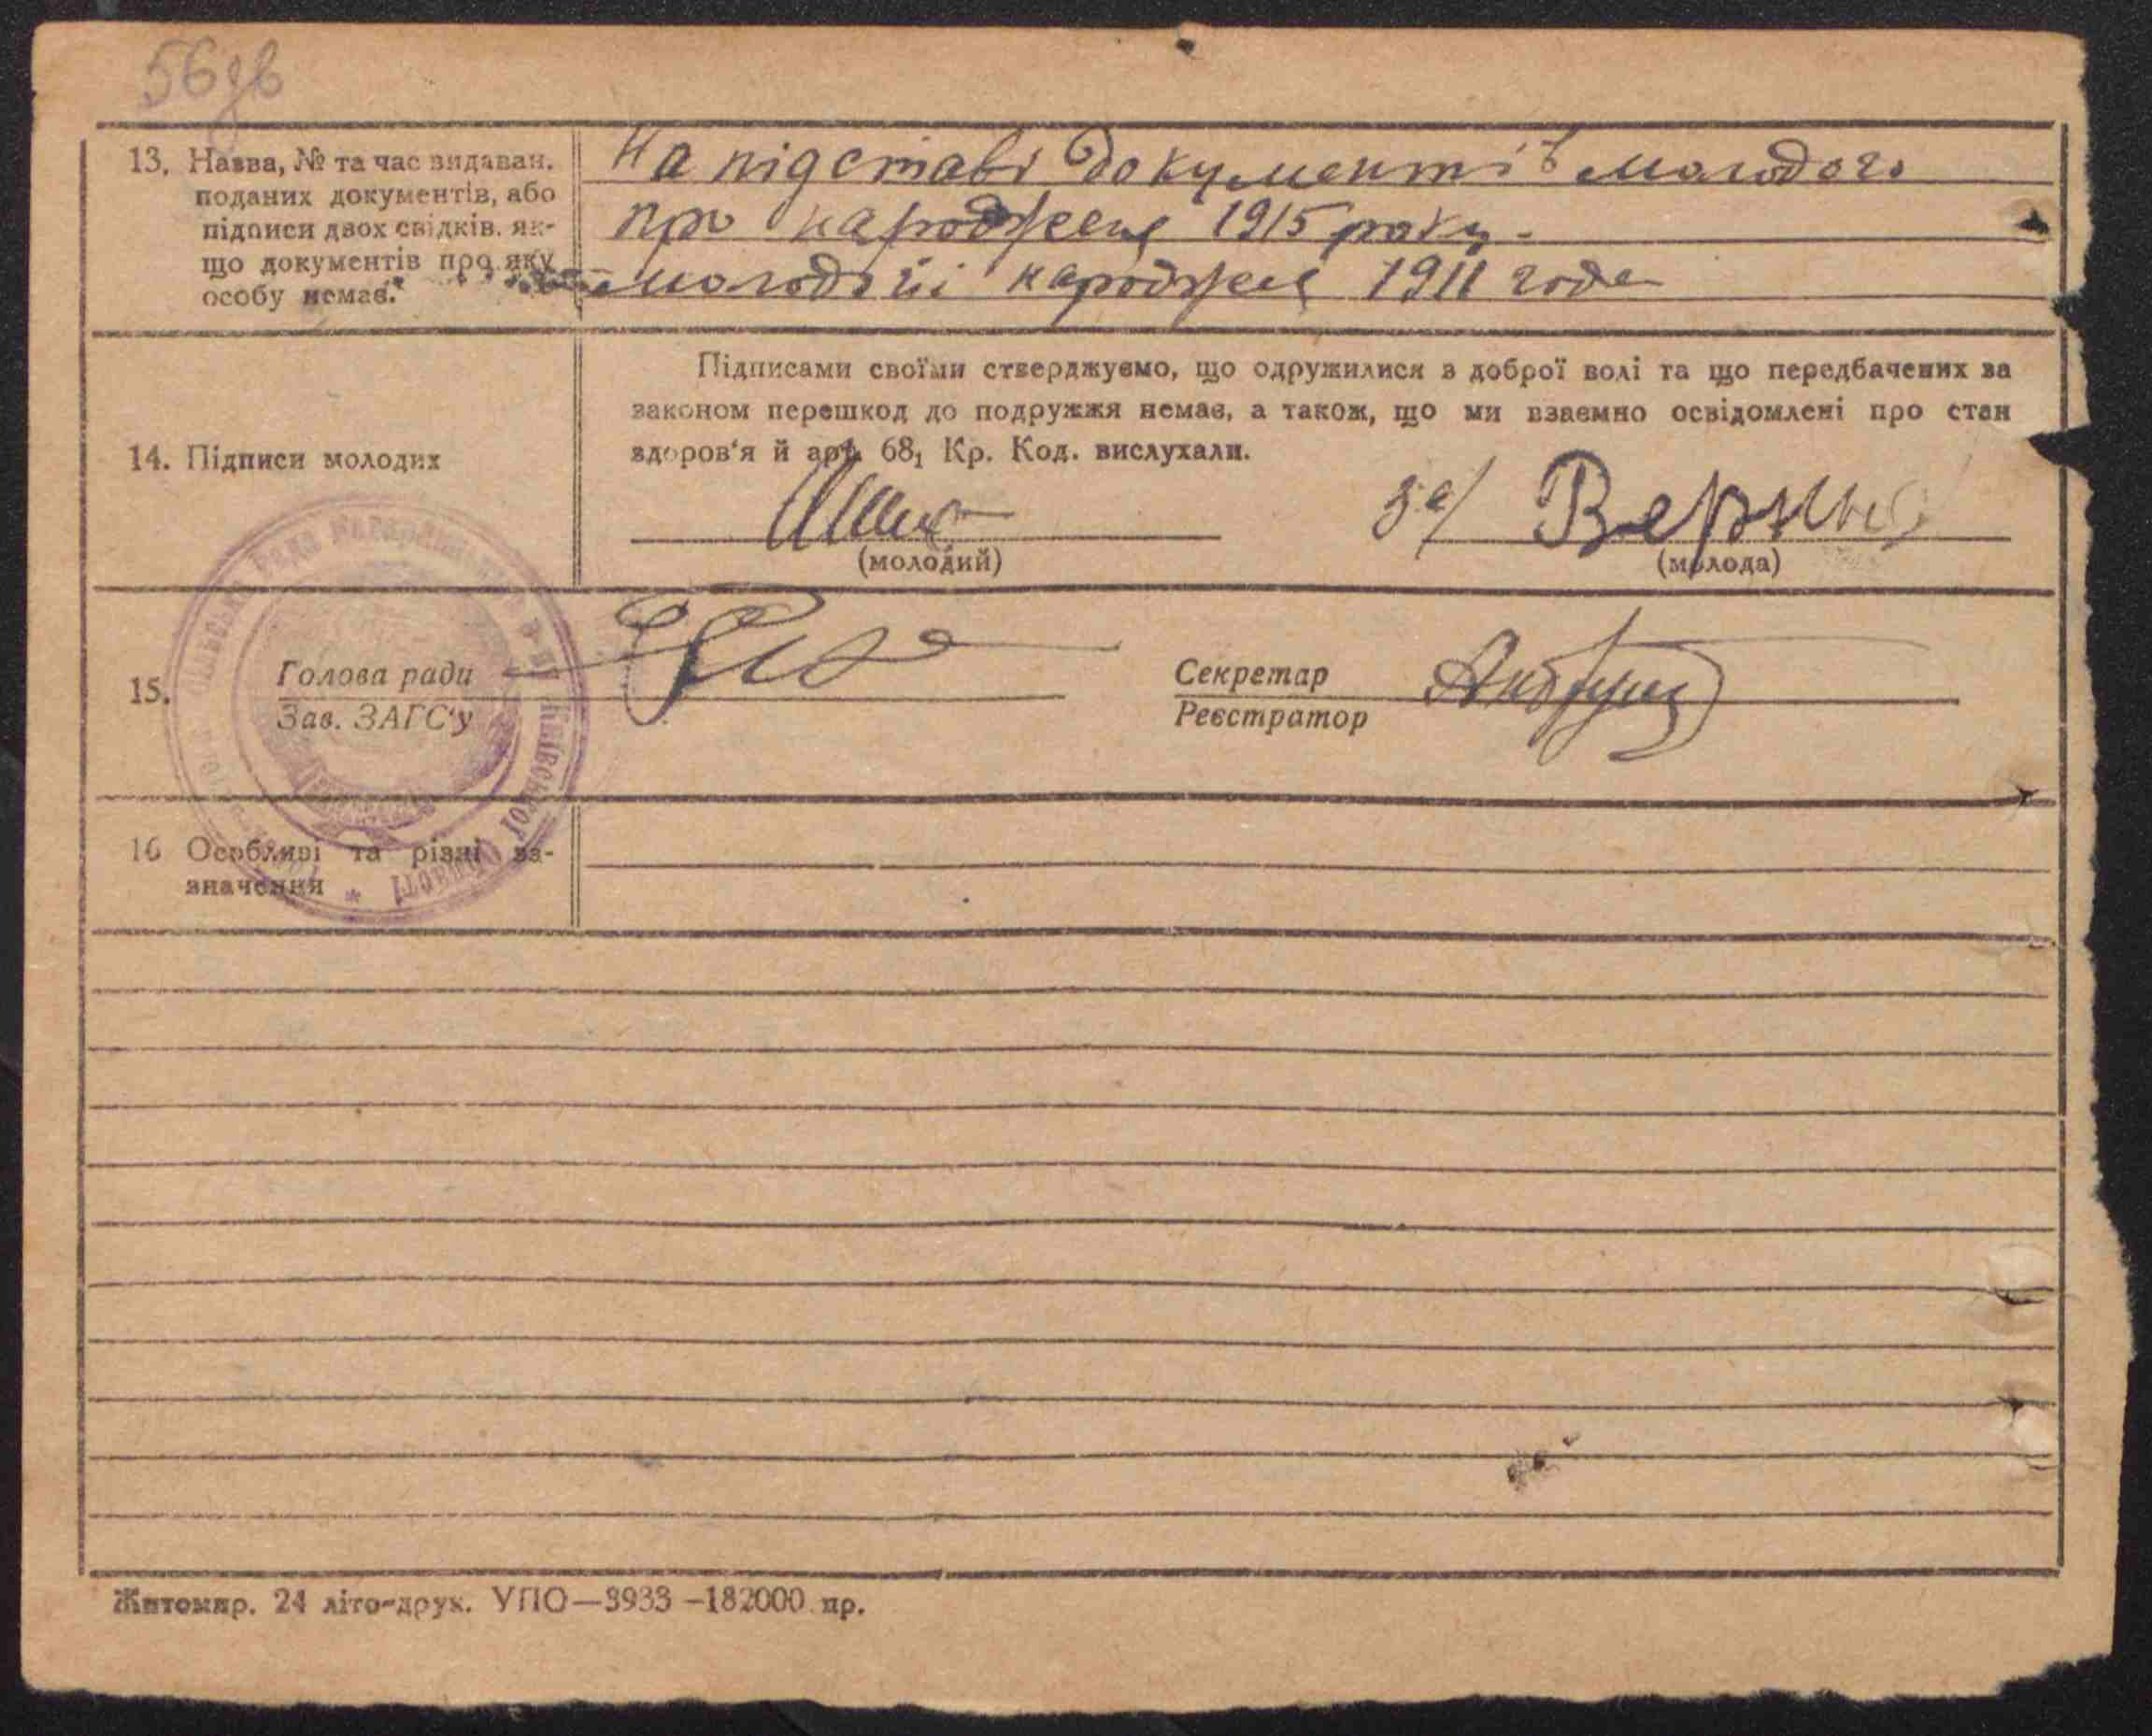 56зв
13. Назва, № та час видаван.
поданих документів, або
підписи двох свідків, як-
що документів про яку
особу немає.
На підставі документів молодого
про народжене 1915 року.
молодой народжене 1911 года
14. Підписи молодих
Підписами своїми стверджуємо, що одружилися з доброї волі та що передбачених за
законом перешкод до подружжя немає, а також, що ми взаємно освідомлені про стан
здоров'я й арт. 68₁ Кр. Код. вислухали.
за/
(молодий)
(молода)
15.
Голова ради
Зав. ЗАГС'у
Секретар
Реєстратор
Київської області
16 Особливі та різні за-
значення
Житомир. 24 літо-друк. УПО—3933—182000 пр.